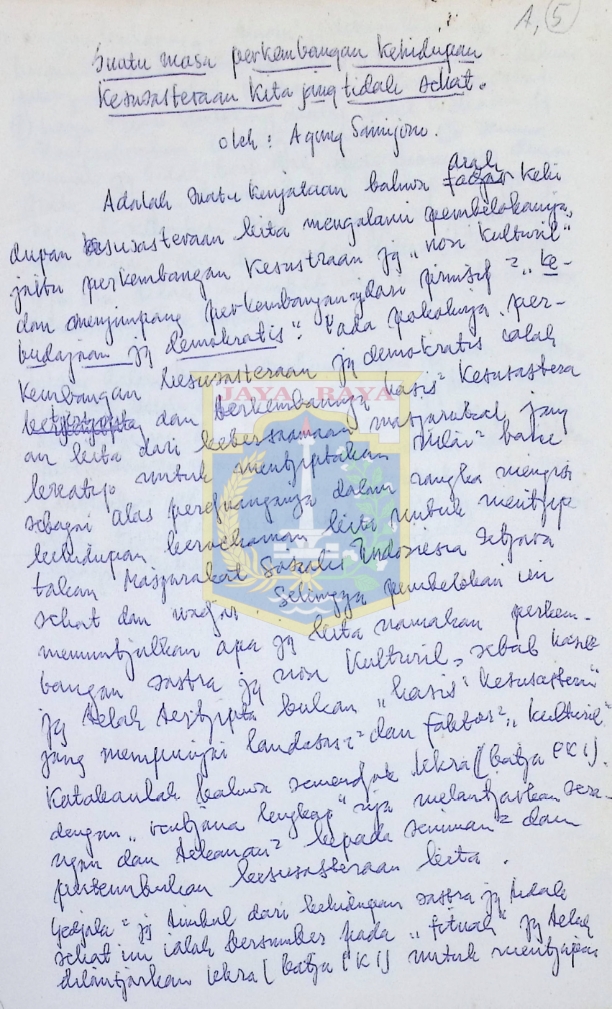 A, 5
Suatu masa perkembangan kehidupan
Kesusasteraan kita jang tidak sehat.
oleh: Agung Samijono.
Adalah suatu kenjataan bahwa arah kehi
dupan kesusasteraan kita mengalami pembelokanja,
jaitu perkembangan Kesustraan jg "non Kulturil"
dan menjimpang perkembangannja dari prinsip2 "ke-
budajaan jg demokratis". Pada pokoknja per-
kembangan kesusasteraan jg demokratis ialah
dan berkembangnja hasis2 Kesusastera
an kita dari kebersamaan masjarakat jang
kreatip untuk mentjiptakan nilai2 baru
sebagai alas perdjuangannja dalam rangka mengisi
kehidupan kerochanian kita untuk mentjip
takan Masjarakat Sosialis Indonesia setjara
sehat dan wadjar. Sehingga pembelokan ini
memuntjulkan apa jg kita namakan perkem-
bangan sastra jg non Kulturil, sebab hasil2
jg telah tertjipta bukan "hasis2 kesusasteraan"
jang mempunjai landasan2 dan faktor2 "kulturil"
Katakanlah bahwa semendjak Lekra (batja PKI).
dengan "rentjana lengkap" nja melantjarkan sera-
ngan dan tekanan2 kepada seniman2 dan
pertumbuhan kesusasteraan kita.
Gedjala2 jg timbul dari kehidupan sastra jg tidak
sehat ini ialah bersumber pada "fitnah" jg telah
dilantjarkan Lekra (batja PKI) untuk mentjapai
JAYA RAYA